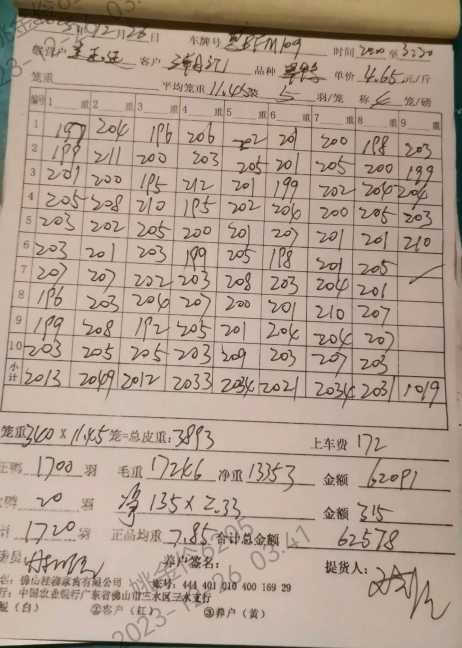 12月26日 车牌号 时间 2:00 至 3:20
客户 品种 单价 4.65 元/斤
笼重 平均笼重 11.45 5 羽/笼 称 4 笼/磅
编号 1 重 2 重 3 重 4 重 5 重 6 重 7 重 8 重 9 重
1 197 204 196 206 202 201 200 198 203
2 199 211 200 203 205 201 205 200 199
3 201 200 195 212 201 199 202 204 204
4 205 208 210 195 202 204 200 205 203
5 203 202 205 200 201 207 201 201 210
6 203 201 203 199 205 198 201 205
7 207 207 202 203 208 203 204 201
8 196 203 204 207 200 201 210 207
9 199 208 192 205 201 204 204 207
10 203 205 205 203 209 203 207 203
小计 2013 2049 2012 2033 2034 2021 2034 2031 1019
笼重 340 × 11.45 笼=总皮重: 3893 上车费 172
正鸭 1700 羽 毛重 17246 净重 13353 金额 62091
鸭 20 羽 净 135 × 2.33 金额 315
计 1720 羽 正品均重 7.85 合计总金额 62578
员 养户签名: 提货人:
名: 佛山桂柳家禽有限公司 账号: 444 401 010 400 169 29
行: 中国农业银行广东省佛山市三水区三水支行
(白) ②客户(红) ③养户(黄)
6295
2023-12-26 03:41